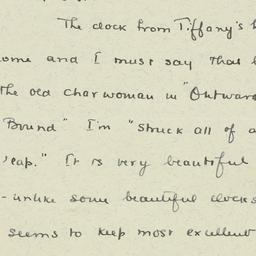 The clock from Tiffany's h
ome and I must say that l
the old charwoman in "Outward
Bound" I'm "struck all of a
'eap." It is very beautiful
- unlike some beautiful clocks
seems to keep most excellent